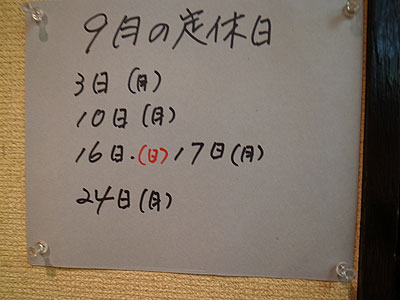 9月の定休日
3日(月)
10日(月)
16日.(日)17日(月)
24日(月)